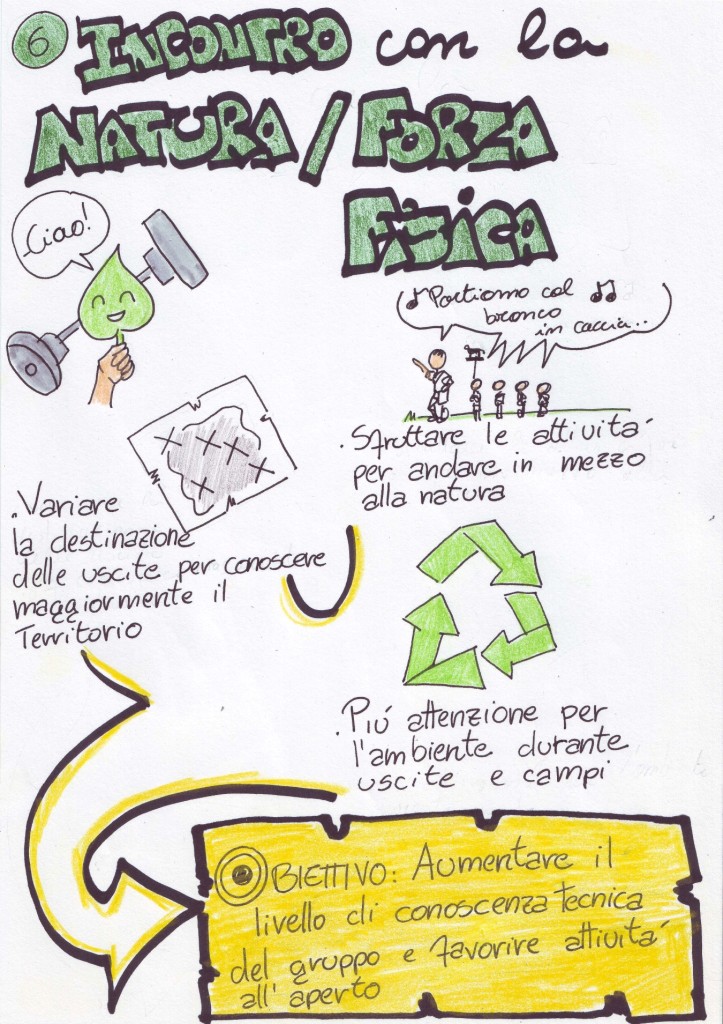 6 INCONTRO con la
NATURA / FORZA
FISICA
Ciao!
Partiamo col
branco
in caccia..
. Sfruttare le attivitá
per andare in mezzo
alla natura
. Variare
la destinazione
delle uscite per conoscere
maggiormente il
Territorio
. Piú attenzione per
l'ambiente durante
uscite e campi
OBIETTIVO: Aumentare il
livello di conoscenza tecnica
del gruppo e favorire attivitá
all'aperto